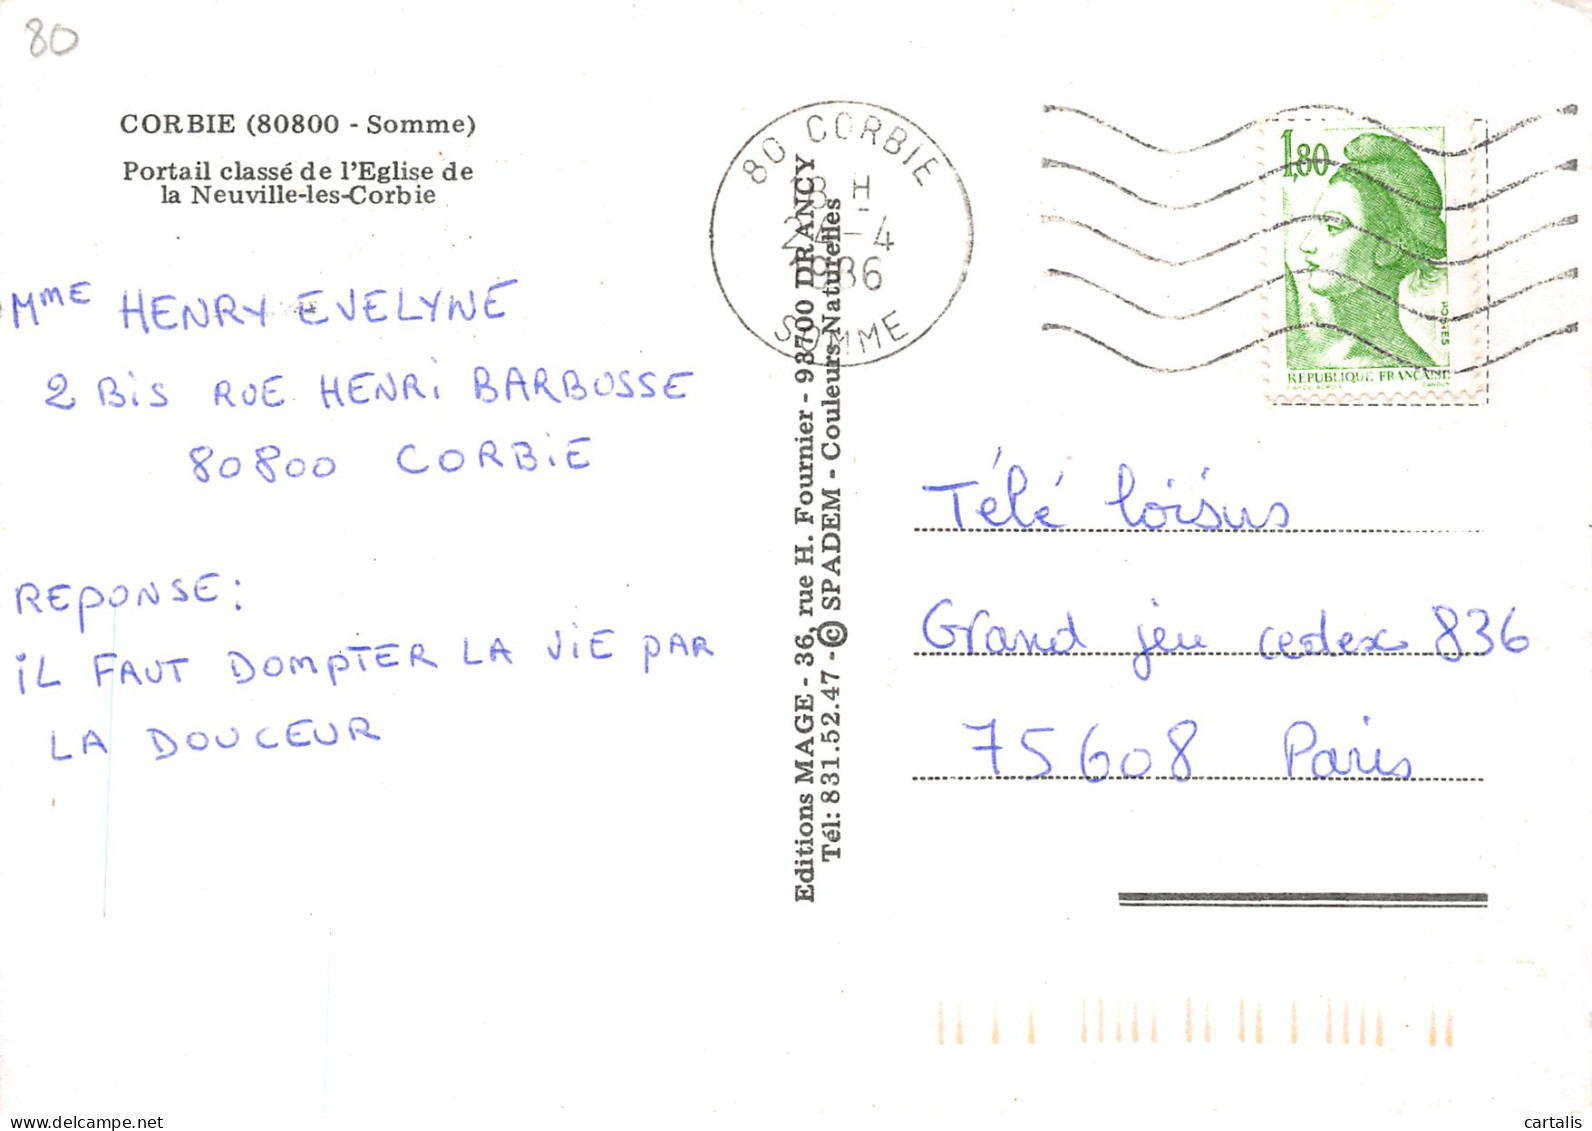 80
CORBIE (80800 - Somme)
Portail classé de l'Eglise de
la Neuville-les-Corbie
Mme HENRY EVELYNE
2 Bis RUE HENRi BARBUSSE
80800 CORBiE
REPONSE:
iL FAUT DOMPTER LA ViE PAR
LA DOUCEUR
Editions MAGE - 36, rue H. Fournier - 93700 DRANCY
Tél: 831.52.47 - © SPADEM - Couleurs Naturelles
80 CORBIE
18 H
24-4
1986
SOMME
1,80
POSTES
REPUBLIQUE FRANCAISE
Télé loisirs
Grand jeu cedex 836
75608 Paris
delcampe.net
cartalis